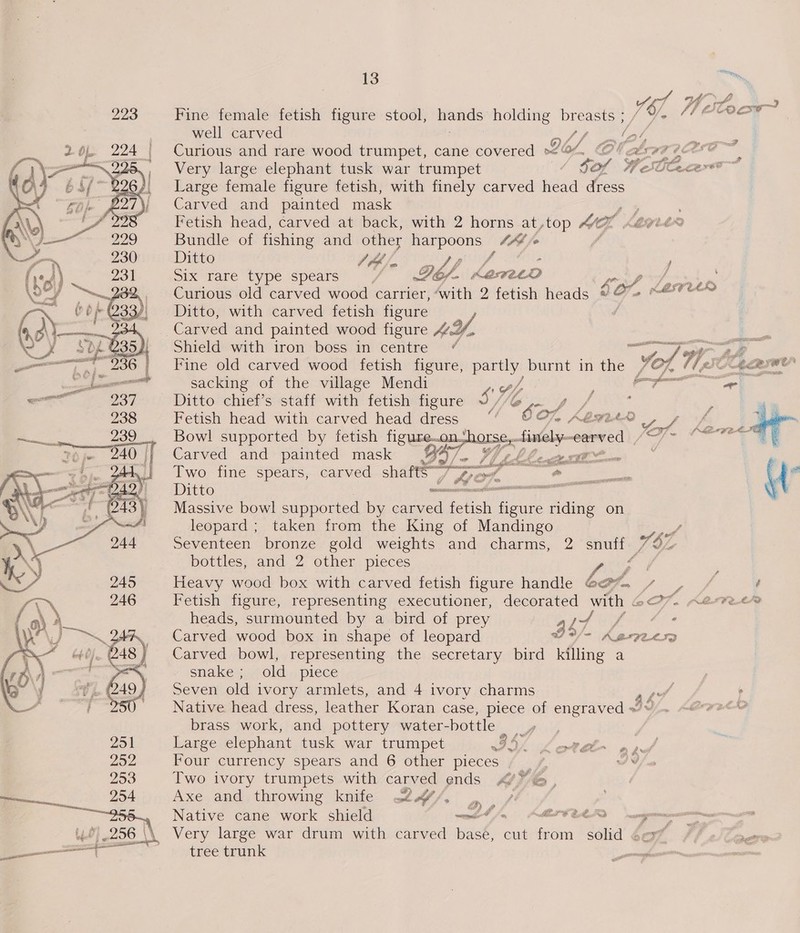 13
223 Fine female fetish figure stool, hands holding breasts;
well carved
224 Curious and rare wood trumpet, cane covered
225 Very large elephant tusk war trumpet
226 Large female figure fetish, with finely carved head dress
227 Carved and painted mask
228 Fetish head, carved at back, with 2 horns at top
229 Bundle of fishing and other harpoons
230 Ditto
231 Six rare type spears
232 Curious old carved wood carrier, with 2 fetish heads
233 Ditto, with carved fetish figure
234 Carved and painted wood figure
235 Shield with iron boss in centre
236 Fine old carved wood fetish figure, partly burnt in the
sacking of the village Mendi
237 Ditto chief's staff with fetish figure
238 Fetish head with carved head dress
239 Bowl supported by fetish figure on horse, finely carved
240 Carved and painted mask
241 Two fine spears, carved shafts
242 Ditto
243 Massive bowl supported by carved fetish figure riding on
leopard; taken from the King of Mandingo
244 Seventeen bronze gold weights and charms, 2 snuff
bottles, and 2 other pieces
245 Heavy wood box with carved fetish figure handle
246 Fetish figure, representing executioner, decorated with
heads, surmounted by a bird of prey
247 Carved wood box in shape of leopard
248 Carved bowl, representing the secretary bird killing a
snake; old piece
249 Seven old ivory armlets, and 4 ivory charms
250 Native head dress, leather Koran case, piece of engraved
brass work, and pottery water-bottle
251 Large elephant tusk war trumpet
252 Four currency spears and 6 other pieces
253 Two ivory trumpets with carved ends
254 Axe and throwing knife
255 Native cane work shield
256 Very large war drum with carved base, cut from solid
tree trunk